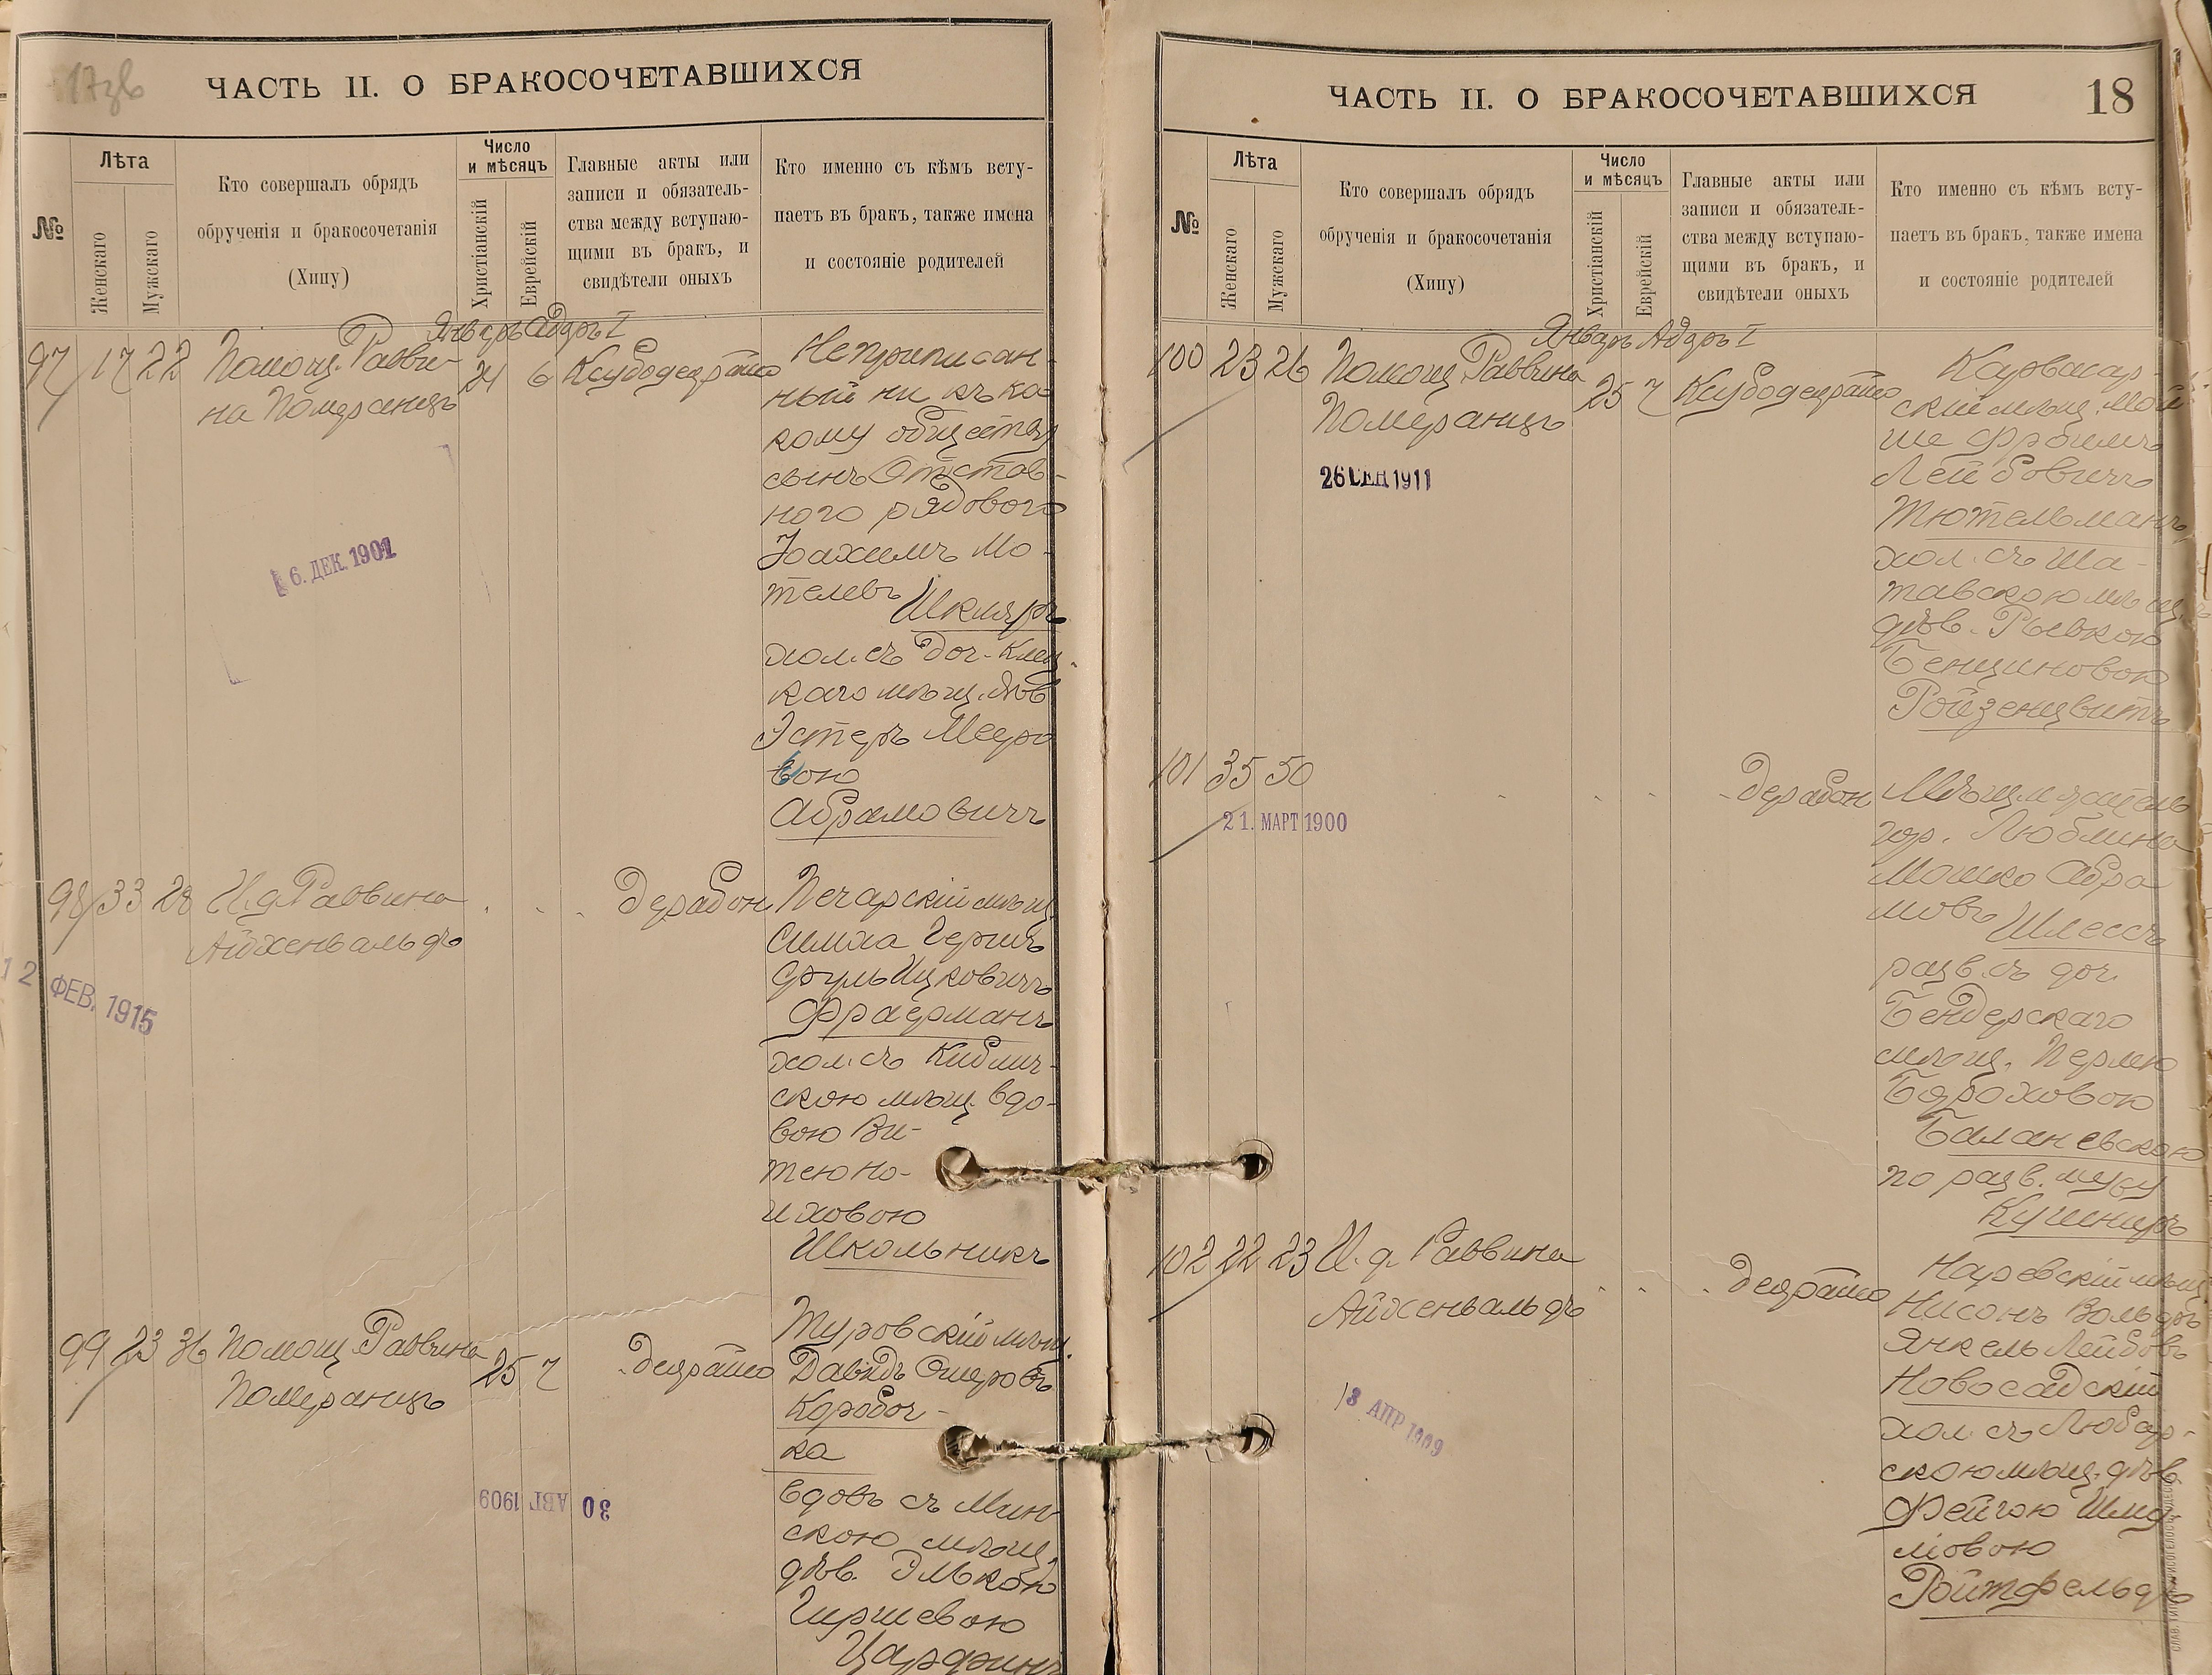 17зв
ЧАСТЬ II. О БРАКОСОЧЕТАВШИХСЯ
№
Лѣта
Женскаго
Мужскаго
Кто совершалъ обрядъ
обрученія и бракосочетанія
(Хипу)
Число
и мѣсяцъ
Христіанскій
Еврейскій
Главные акты или
записи и обязатель-
ства между вступаю-
щими въ бракъ, и
свидѣтели оныхъ
Кто именно съ кѣмъ всту-
паетъ въ бракъ, также имена
и состояніе родителей
Январь Адаръ I
97 17 22 Помощ. Равви-
на Померанцъ
24 6
Неприписан-
ный ни къ ка-
кому обществу
сынъ Отстав-
ного рядового
Іоахимъ Мо-
телевъ
Шкляръ
хол. съ доч. Клец-
каго мѣщ. дѣв
Эстеръ Мееро
вою
Абрамовичъ
6. ДЕК. 1901
98 33 28 И. д. Раввина
Айхенвальдъ
Печарскій мѣщ
Симха Герш
Ицковичъ
Фраерманъ
хол. съ Кублич-
скою мѣщ. вдо-
вою Ви-
тею Но-
иховою
Школьникъ
12 ФЕВ. 1915
99 23 36 Помощ. Раввина
Померанцъ
25 7
Туровскій мѣщ.
Давидъ Ошеровъ
Коробоч-
ка
вдовъ съ Мин-
скою мѣщ.
дѣв. Элькою
Гиршевою
30 АВГ 1909
ЧАСТЬ II. О БРАКОСОЧЕТАВШИХСЯ
18
№
Лѣта
Женскаго
Мужскаго
Кто совершалъ обрядъ
обрученія и бракосочетанія
(Хипу)
Число
и мѣсяцъ
Христіанскій
Еврейскій
Главные акты или
записи и обязатель-
ства между вступаю-
щими въ бракъ, и
свидѣтели оныхъ
Кто именно съ кѣмъ всту-
паетъ въ бракъ, также имена
и состояніе родителей
Январь Адаръ I
100 23 26 Помощ. Раввина
Померанцъ
25 7
Карвасар-
скій мѣщ. Мой
ше Фроимъ
Лейбовичъ
Тютельманъ
хол. съ Ша-
тавскою мѣщ.
дѣв. Рывкою
Бенционовою
Ройзенцвитъ
26 СЕН 1911
101 35 50
гор. Люблина
Мошко Абра
мовъ Шлессъ
разв. съ доч.
Бендерскаго
мѣщ. Перлею
Бороховою
Балановскою
по разв. мужу
Кушниръ
21. МАРТ 1900
102 22 23 И. д. Раввина
Айхенвальдъ
Наревскій мѣщ
Нисонъ Вольфъ
Янкель Лейбовъ
Новосадскій
хол. съ Любар-
скою мѣщ. дѣв.
Фейгою Шма-
ліовою
Ройтфельдъ
13 АПР 1909